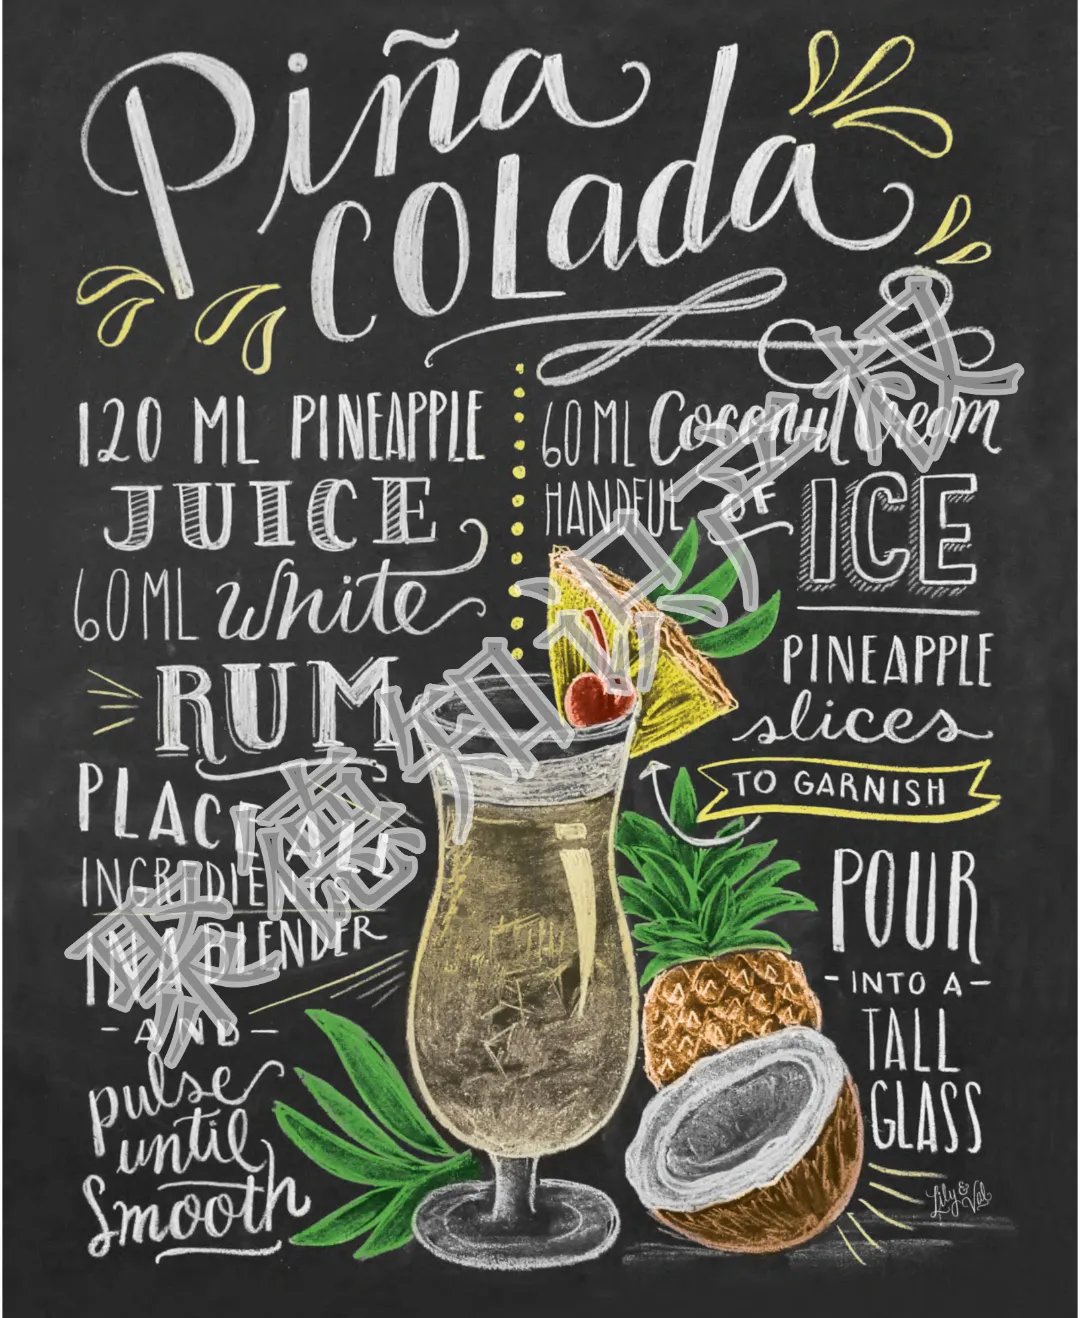 Piña
COLada
120 ML PINEAPPLE
JUICE
60ML white
RUM
PLACE ALL
INGREDIENTS
IN A BLENDER
- AND -
pulse
until
Smooth
60ML Coconut Cream
HANDFUL OF ICE
PINEAPPLE
slices
TO GARNISH
POUR
- INTO A -
TALL
GLASS
Lily & Val
聚德知识产权